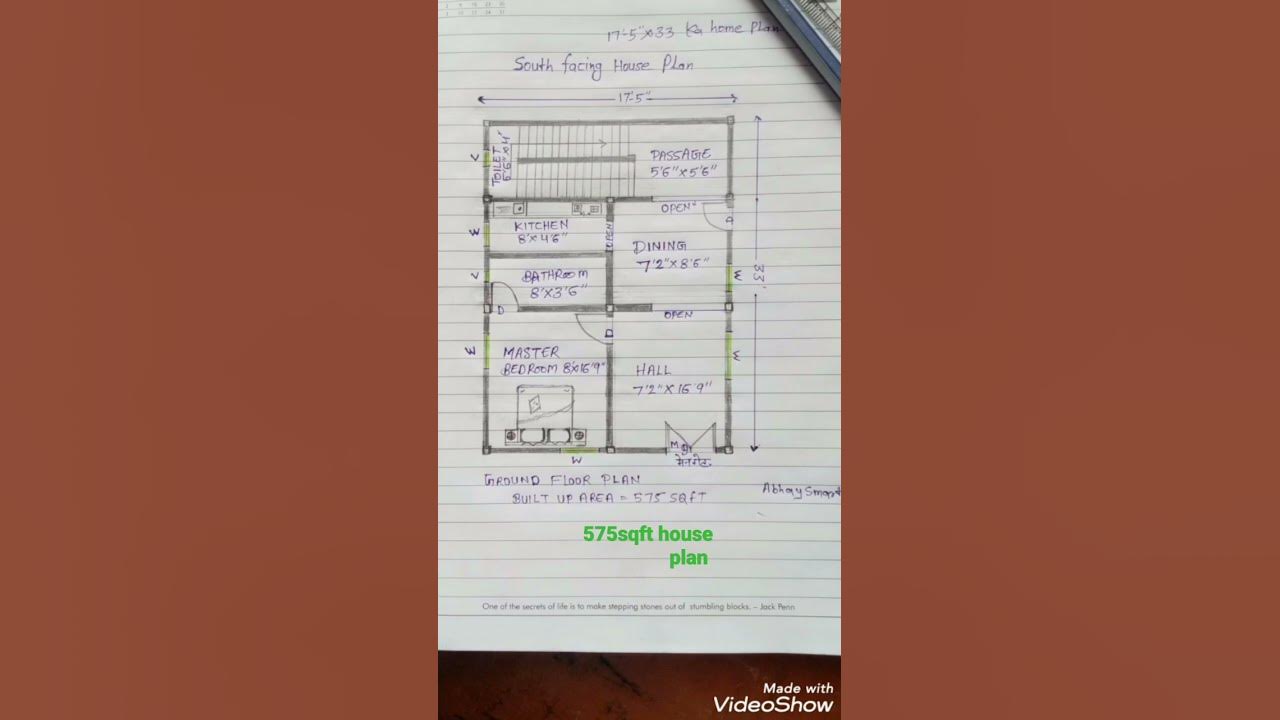 17'-5"x33 Ka home Plan
South facing House Plan
17'-5"
TOILET
6'6"x4'
PASSAGE
5'6"x5'6"
V
OPEN
D
KITCHEN
8'x4'6"
OPEN
W
DINING
7'2"x8'6"
33'
BATHROOM
8'x3'6"
V
W
D
OPEN
D
W
MASTER
BEDROOM 8'x16'9"
W
HALL
7'2"x16'9"
मेनगेट
W
GROUND FLOOR PLAN
BUILT UP AREA = 575 SQFT
Abhay Smart
575sqft house
plan
One of the secrets of life is to make stepping stones out of stumbling blocks. – Jack Penn
Made with
VideoShow